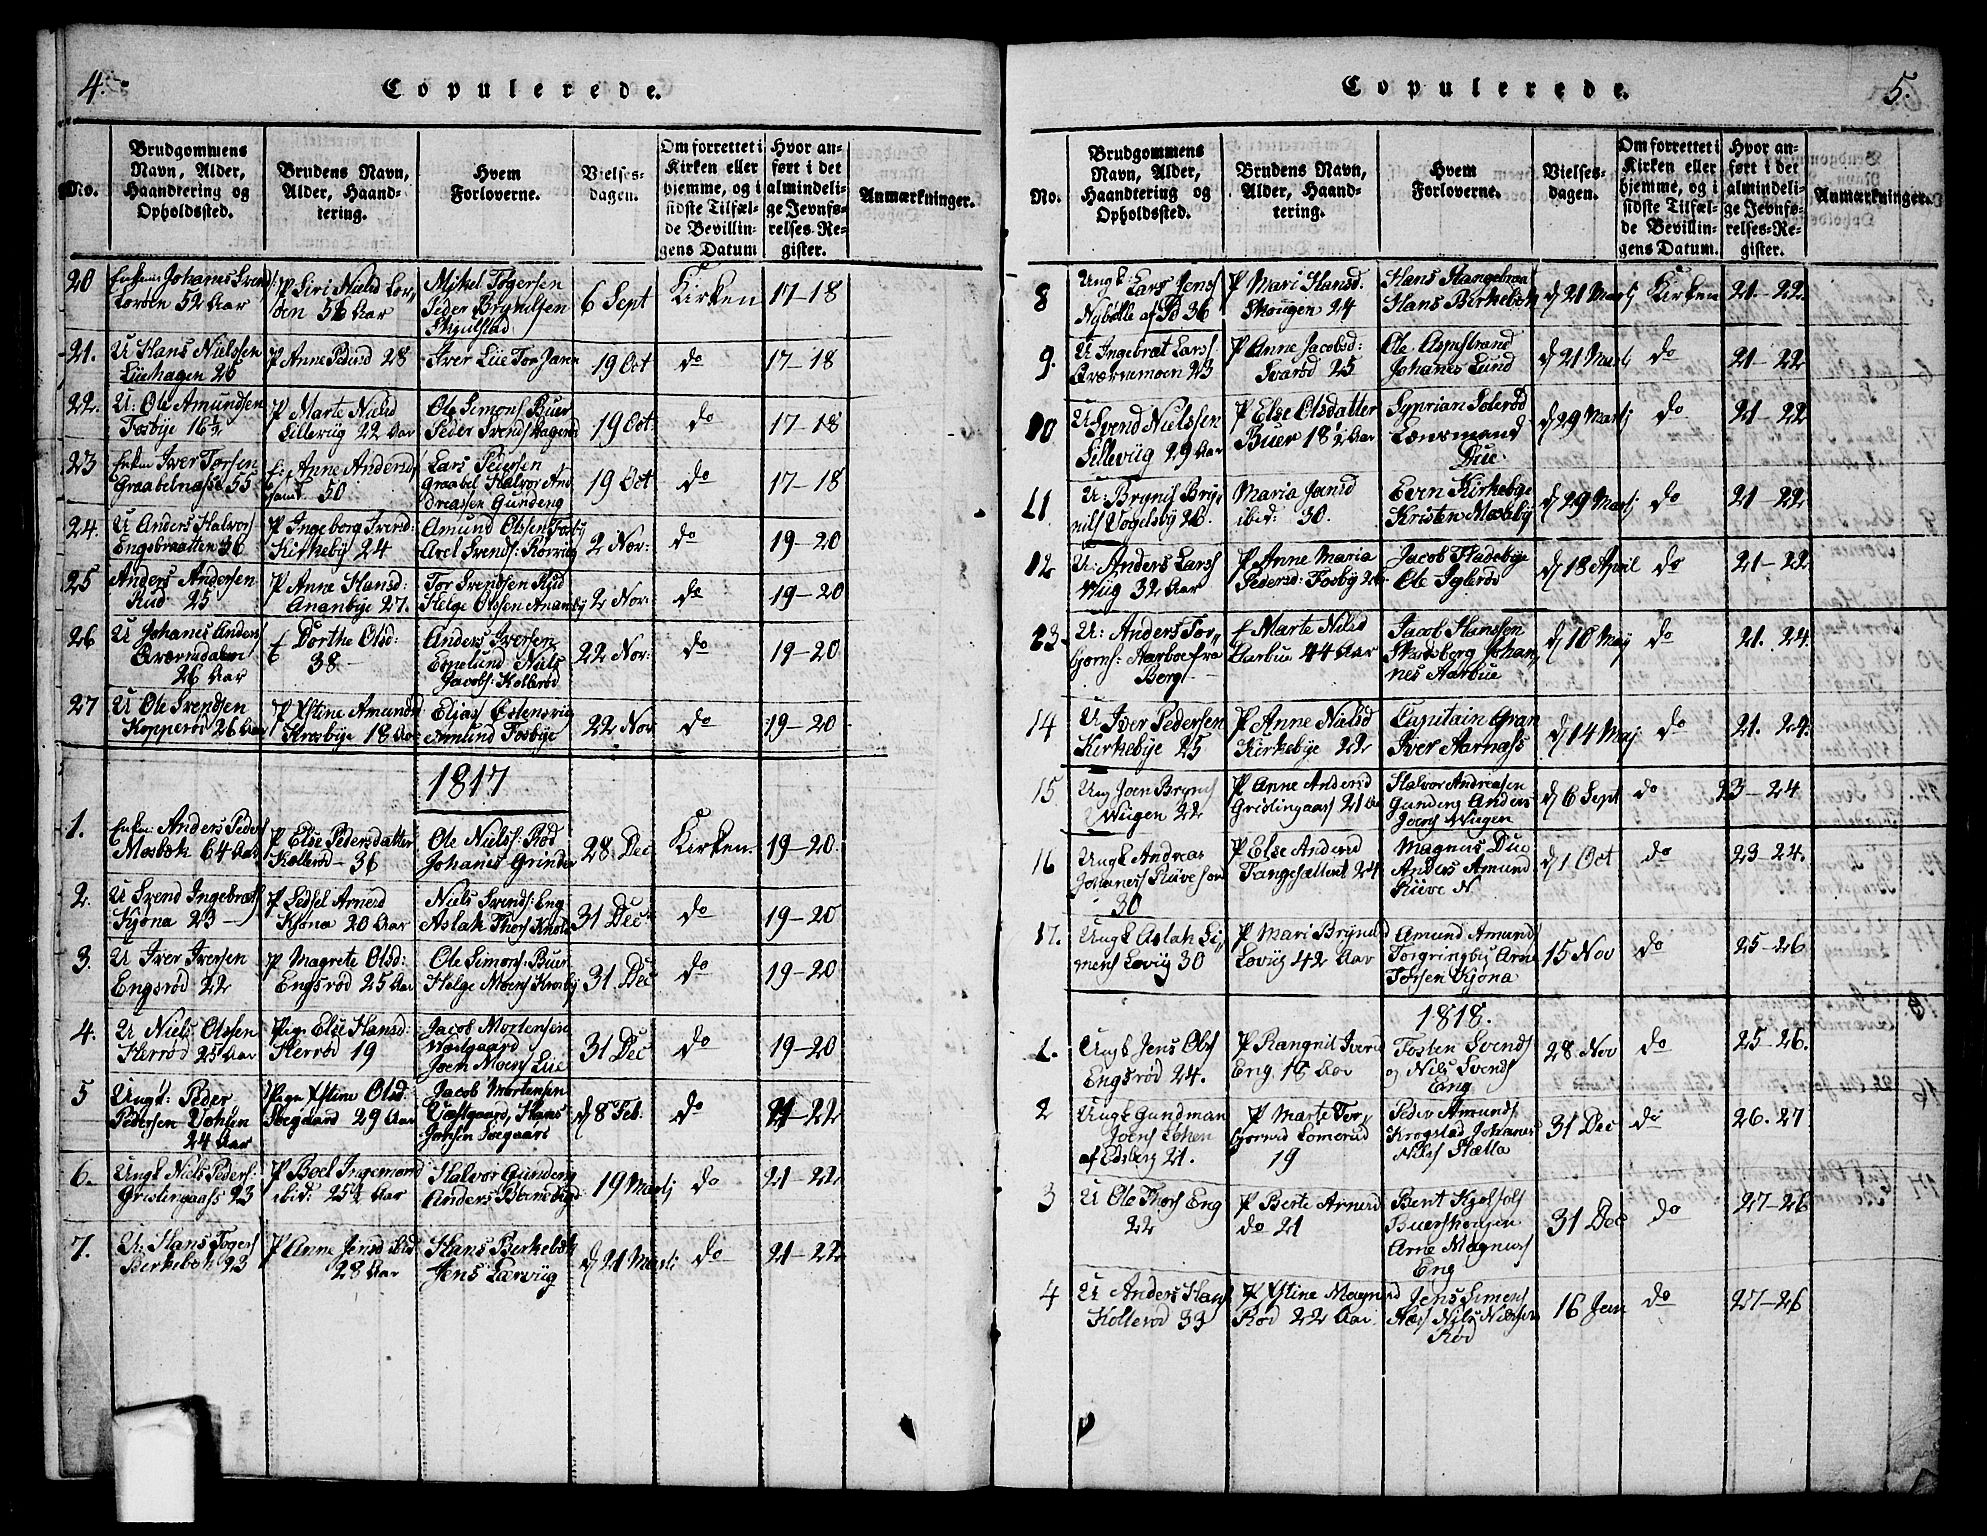 4.
Copulerede.
No.
Brudgommens
Navn, Alder,
Haandtering og
Opholdssted.
Brudens Navn,
Alder, Haand-
tering.
Hvem
Forloverne.
Vielses-
dagen.
Om forrettet i
Kirken eller
hjemme, og i
sidste Tilfæl-
de Bevillin-
gens Datum
Hvor an-
ført i det
almindeli-
ge Jevnfø-
relses-Re-
gister.
Anmærkninger.
20 Johanes Svend
52 Aar
P Siri Nielsd
Mikel Togersen
Peder Brynilsen
6 Sept Kirken 17-18
21. U Hans Nielssen
Lüehagen 26
P Anne Pedersd 28
Iver Lüe Tor
19 Oct do 17-18
22. U: Ole Amundsen
Fosbye 16½
P Marte Nielsd
Sillevüg 22 Aar
Ole Simons: Buer
Peder Svends
19 Oct do 17-18
23 Iver Torsen
55
E: Anne Andersd
50
Lars
Graabel Halvor And
dreassen Gundeng
19 Oct do 17-18
24. U Anders Halvors
Engebraatten 36
P Ingeborg Iversd:
Kirkeby 24
Amund Olssen Fosby
Axel Svends: Rörvüg
2 Nov: do 19-20
25 Anders Andersen
Rud 25
P Anne Hansd:
Ananbye 27.
Tor Svendsen Rud
Helge Olssen Ananby
2 Nov: do 19-20
26 U Johanes Anders
26 Aar
E Dorthe Olsd:
38-
Anders Iversen
Espelund Niels
Jacobs: Kollerød
22 Nov: do 19-20
27 U Ole Svendsen
Kopperød 26 Aar
P Xstine Amundsd
Krosbye 18 Aar
Elias Estensvig
Amund Fosbye
22 Nov do 19-20
1817
1. Anders Peders
Mosbæk 64 Aar
P Else Pedersdatter
Kollerød - 36
Ole Niels: Rød
Johanes Grinde
28 Dec Kirken 19-20
2. U Svend Ingebretss
Kjøna 23 -
P Sedsel Arnesd
Kjøna 20 Aar
Niels Svends: Eng
Aslak Thors
31 Dec: do 19-20
3. U Iver Iversen
Engsrød 22
P Magrete Olsd:
Engsrød 25 Aar
Ole Simons: Buer
Helge Moens Krosby
31 Dec do 19-20
4. U Niels Olssen
Herrød 25 Aar
Pige Else Hansd:
Herrød 19
Jacob Mortensen
Westgaard
Joen Moens Lüe
31 Dec do 19-20
5 Ungk: Peder
Pedersen
24 Aar
Pige Xstine Olsd:
Søegaard 29 Aar
Jacob Mortensen
Vestgaard, Hans
Johsen Søegaard
d 8 Feb: do 21-22
6. Ungk Niels Peders:
Grislingaass 23
P Boel Ingemond
ibid: 25½ Aar
Halvor Gundeng
Anders
19 Martj do 21-22
7. U: Hans Togers
Berkebok 23
P Anne Jensd ibid
28 Aar
Hans Berkebok
Jens Lærvüg
d 21 Martj do 21-22
5.
Copulerede.
No.
Brudgommens
Navn, Alder,
Haandtering og
Opholdssted.
Brudens Navn,
Alder, Haand-
tering.
Hvem
Forloverne.
Vielses-
dagen.
Om forrettet i
Kirken eller
hjemme, og i
sidste Tilfæl-
de Bevillin-
gens Datum.
Hvor an-
ført i det
almindeli-
ge Jevnfø-
relses-Re-
gister.
Anmærkninger.
8 Ungk: Lars Jens
Nybølle 36
P Mari Hansd.
Skougen 24
Hans
Hans Birkebok
d 21 Martj Kirken 21-22.
9. U Ingebræt Larss
Qværnemoen 23
P Anne Jacobsd:
Svarød 25
Ole Aspestrand
Johanes Lund
d 21 Martj do 21-22
10 U Svend Nielssen
Sillevüg 29 Aar
P Else Olsdatter
Buer 18½ Aar
Syprian Solerød
Lænsmand
Due.
d 29 Martj do 21-22
11 U: Brynils Bry,,
nils Vogelsby 26.
Maria Jensd
ibid: 30.
Even Kirkebye
Kristen Moseby
d 29 Martj do 21-22
12 U: Anders Larss
Wüg 32 Aar
P Anne Maria
Pedersd: Fosby 26
Jacob Stadebye
Ole Iglerød
d 18 April do 21-22
13. U: Anders Tor,,
bjorns: Aarboe fra
Berg
E Marte Nilsd
Aarbue 44 Aar
Jacob Hanssen
Skadsberg Johan,,
nes Aarbue
d 10 Maj do 21. 24.
14 U Iver Pedersen
Kirkebye 25
P Anne Nielsd
Kirkebye 22
Capitain Gran
Iver Aarnæss
d 14 Maj do 21. 24.
15. Ung Joen Bryns
Wügen 22
P Anne Andersd
Grislingaass 21 Aar
Halvor Andreasen
Gundeng Anders
Joens Wügen
d 6 Sept do 23-24.
16 Ungk Andreas
Johanes
30
P Else Andersd
Tangesætteret 24
Magnus Due
Anders Amund
Riive N
d 1 Oct do 23-24.
17. Ungk Aslak Si,,
mens Lovüg 30
P Mari Brynild
Lovüg 42 Aar
Amund Amunds
Torgrimbye Arne
Torsen Kjøna
15 Nov do 25-26
1818.
1. Ungk Jens Olss
Engsrød 24.
P Rangnil Iversd
Eng. 18 Aar
Tosten Svends
og Nils Svends
Eng
28 Nov do 25-26.
2 Ungk Gundman
Joens
af Edsberg 21.
P Marte Tor,,
bjornsd Lomerud
19
Peder Amunds
Krogstad Johanes
Nils Slætta
31 Dec do 26. 27
3 U Ole Thors Eng
22
P Berte Arnesd
do 21
Bent Kjølsols
Buerskogen
Arne Magnuss
Eng
31 Dec do 27-26
4 U Anders Hans
Kollerød 33
P Xstine Magnesd
Rød 22 Aar.
Jens Simens
Næs Nils Nielsen
Rød
16 Jan do 27-26